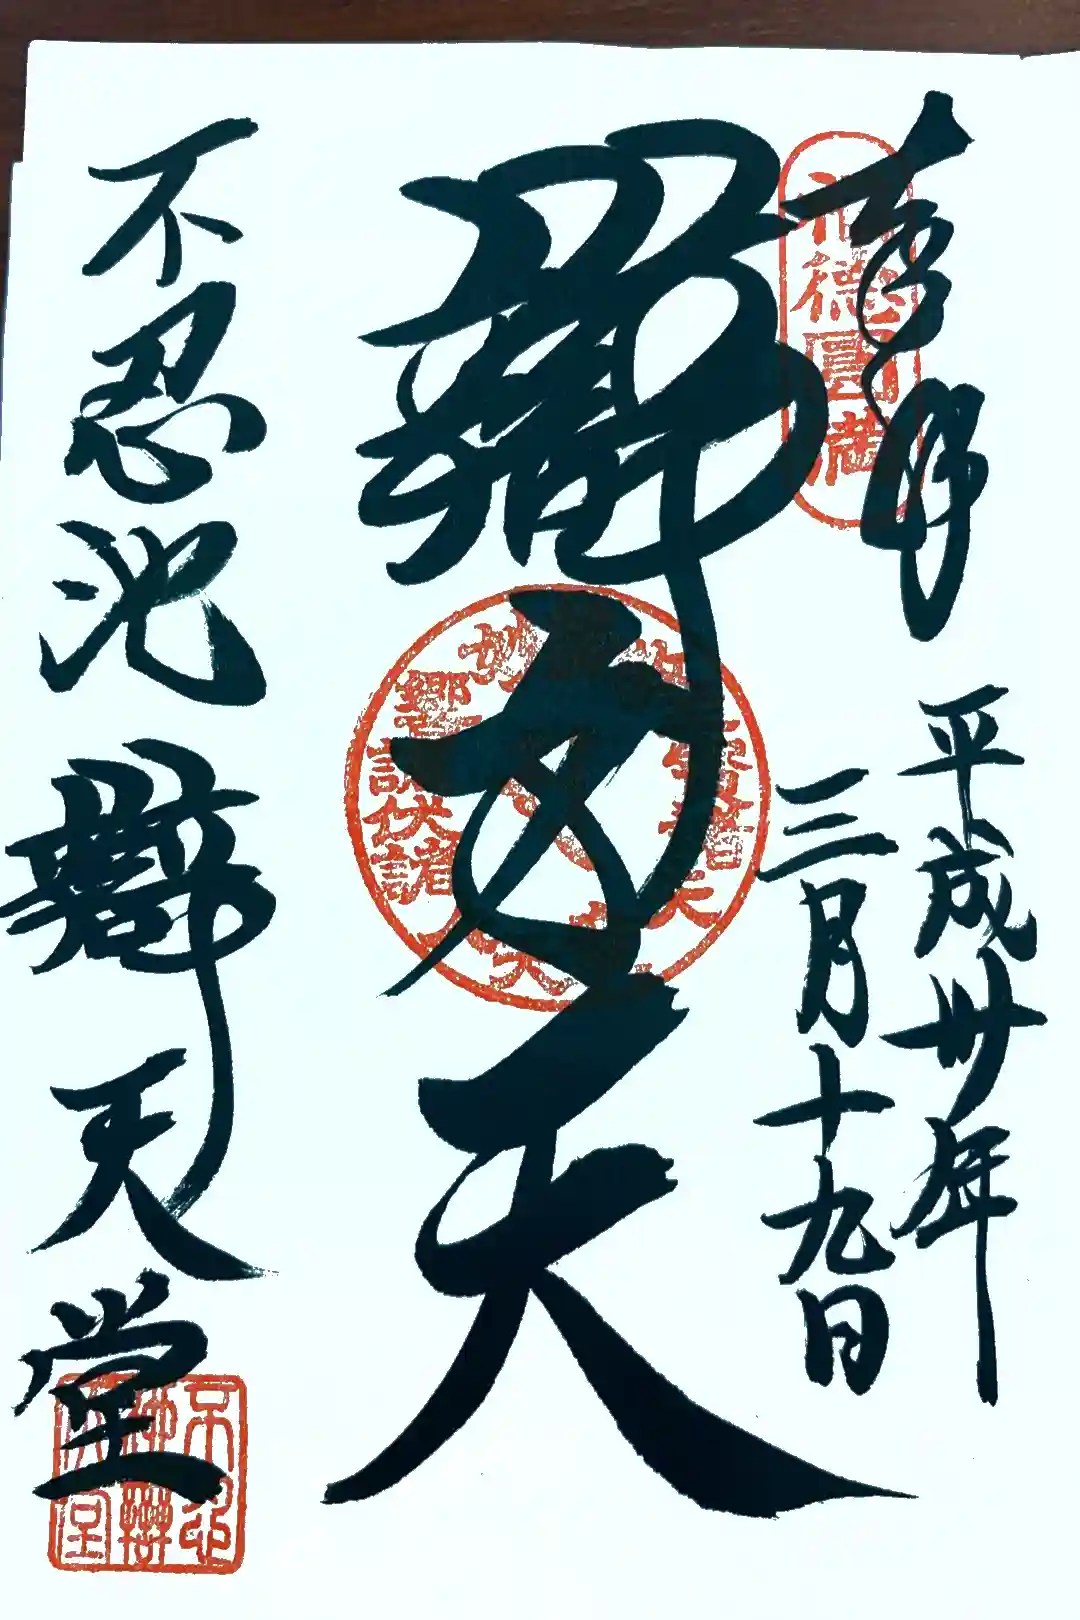 奉拝
福德圓満
平成卅年
三月十九日
辯才天
不忍池辯天堂
不忍
池辯
天堂